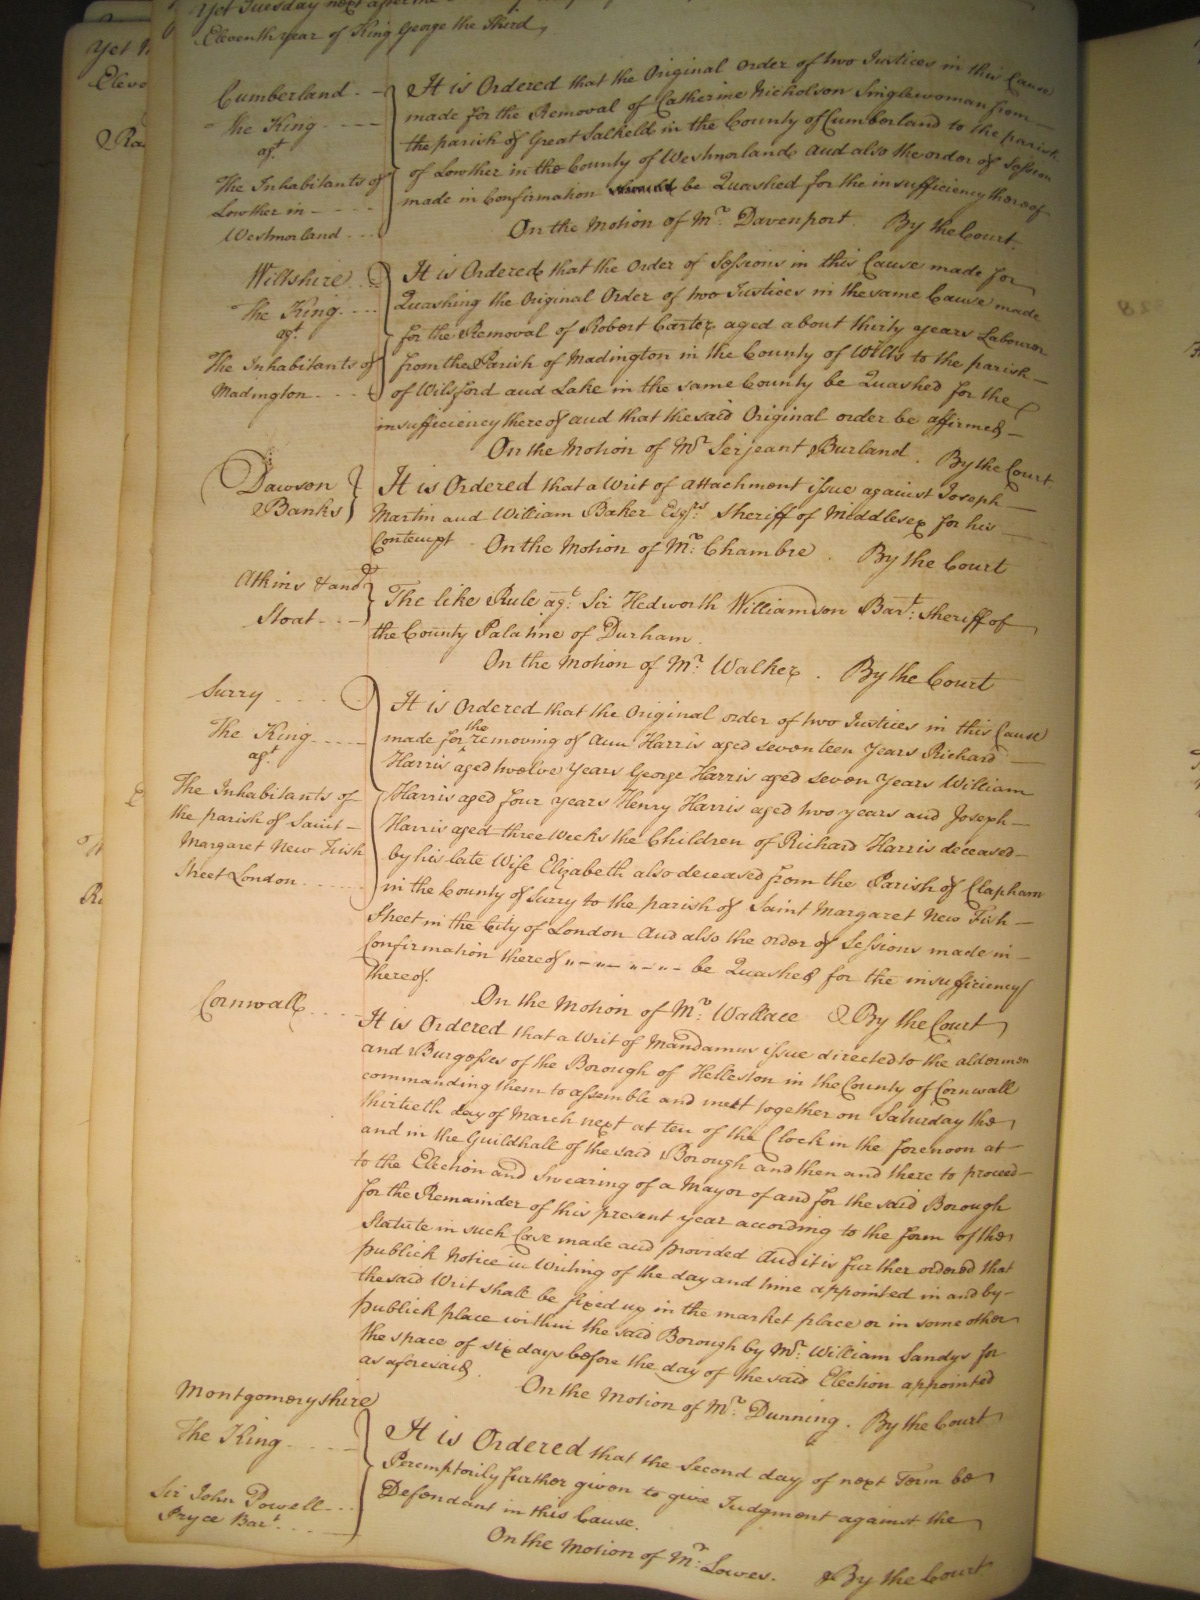 Yet Tuesday next after the
Eleventh year of King George the Third
Cumberland
The King
agt.
The Inhabitants of
Lowther in
Westmorland
It is Ordered that the Original order of two Justices in this Cause
made for the Removal of Catherine Nicholson Singlewoman from
the parish of Great Salkeld in the County of Cumberland to the parish
of Lowther in the County of Westmorland And also the order of Session
made in Confirmation be Quashed for the insufficiency thereof
On the Motion of Mr. Davenport. By the Court.
Wiltshire
The King
agt.
The Inhabitants of
Madington
It is Ordered that the Order of Sessions in this Cause made for
Quashing the Original Order of two Justices in the same Cause made
for the Removal of Robert Carter aged about thirty years Labourer
from the Parish of Madington in the County of Wilts to the parish
of Wilsford and Lake in the same County be Quashed for the
insufficiency thereof and that the said Original order be affirmed
On the Motion of Mr. Serjeant Burland. By the Court
Dawson
Banks
It is Ordered that a Writ of attachment issue against Joseph
Martin and William Baker Esqrs. Sheriff of Middlesex for his
Contempt On the Motion of Mr. Chambre. By the Court
Atkins & and
Stoat
The like Rule agt. Sir Hedworth Williamson Bart. Sheriff of
the County Palatine of Durham.
On the Motion of Mr. Walker. By the Court
Surry
The King
agt.
The Inhabitants of
the parish of Saint
Margaret New Fish
Street London
It is Ordered that the Original order of two Justices in this Cause
made for the removing of Ann Harris aged seventeen Years Richard
Harris aged twelve Years George Harris aged seven Years William
Harris aged four years Henry Harris aged two years and Joseph
Harris aged three Weeks the Children of Richard Harris deceased
by his late Wife Elizabeth also deceased from the Parish of Clapham
in the County of Surry to the parish of Saint Margaret New Fish
Street in the City of London And also the order of Sessions made in
Confirmation thereof be Quashed for the insufficiency
thereof.
On the Motion of Mr. Wallace By the Court
Cornwall
It is Ordered that a Writ of Mandamus issue directed to the aldermen
and Burgesses of the Borough of Helleston in the County of Cornwall
commanding them to assemble and meet together on Saturday the
thirtieth day of March next at ten of the Clock in the forenoon at
and in the Guildhall of the said Borough and then and there to proceed
to the Election and Swearing of a Mayor of and for the said Borough
for the Remainder of this present year according to the form of the
Statute in such Case made and provided And it is further ordered that
publick Notice in Writing of the day and time appointed in and by
the said Writ shall be fixed up in the market place or in some other
publick place within the said Borough by Mr. William Sandys for
the space of six days before the day of the said Election appointed
as aforesaid.
On the Motion of Mr. Dunning. By the Court
Montgomeryshire
The King
Sir John Powell
Pryce Bart.
It is Ordered that the Second day of next Term be
Peremptorily further given to give Judgment against the
Defendant in this Cause.
On the Motion of Mr. Lowes. By the Court